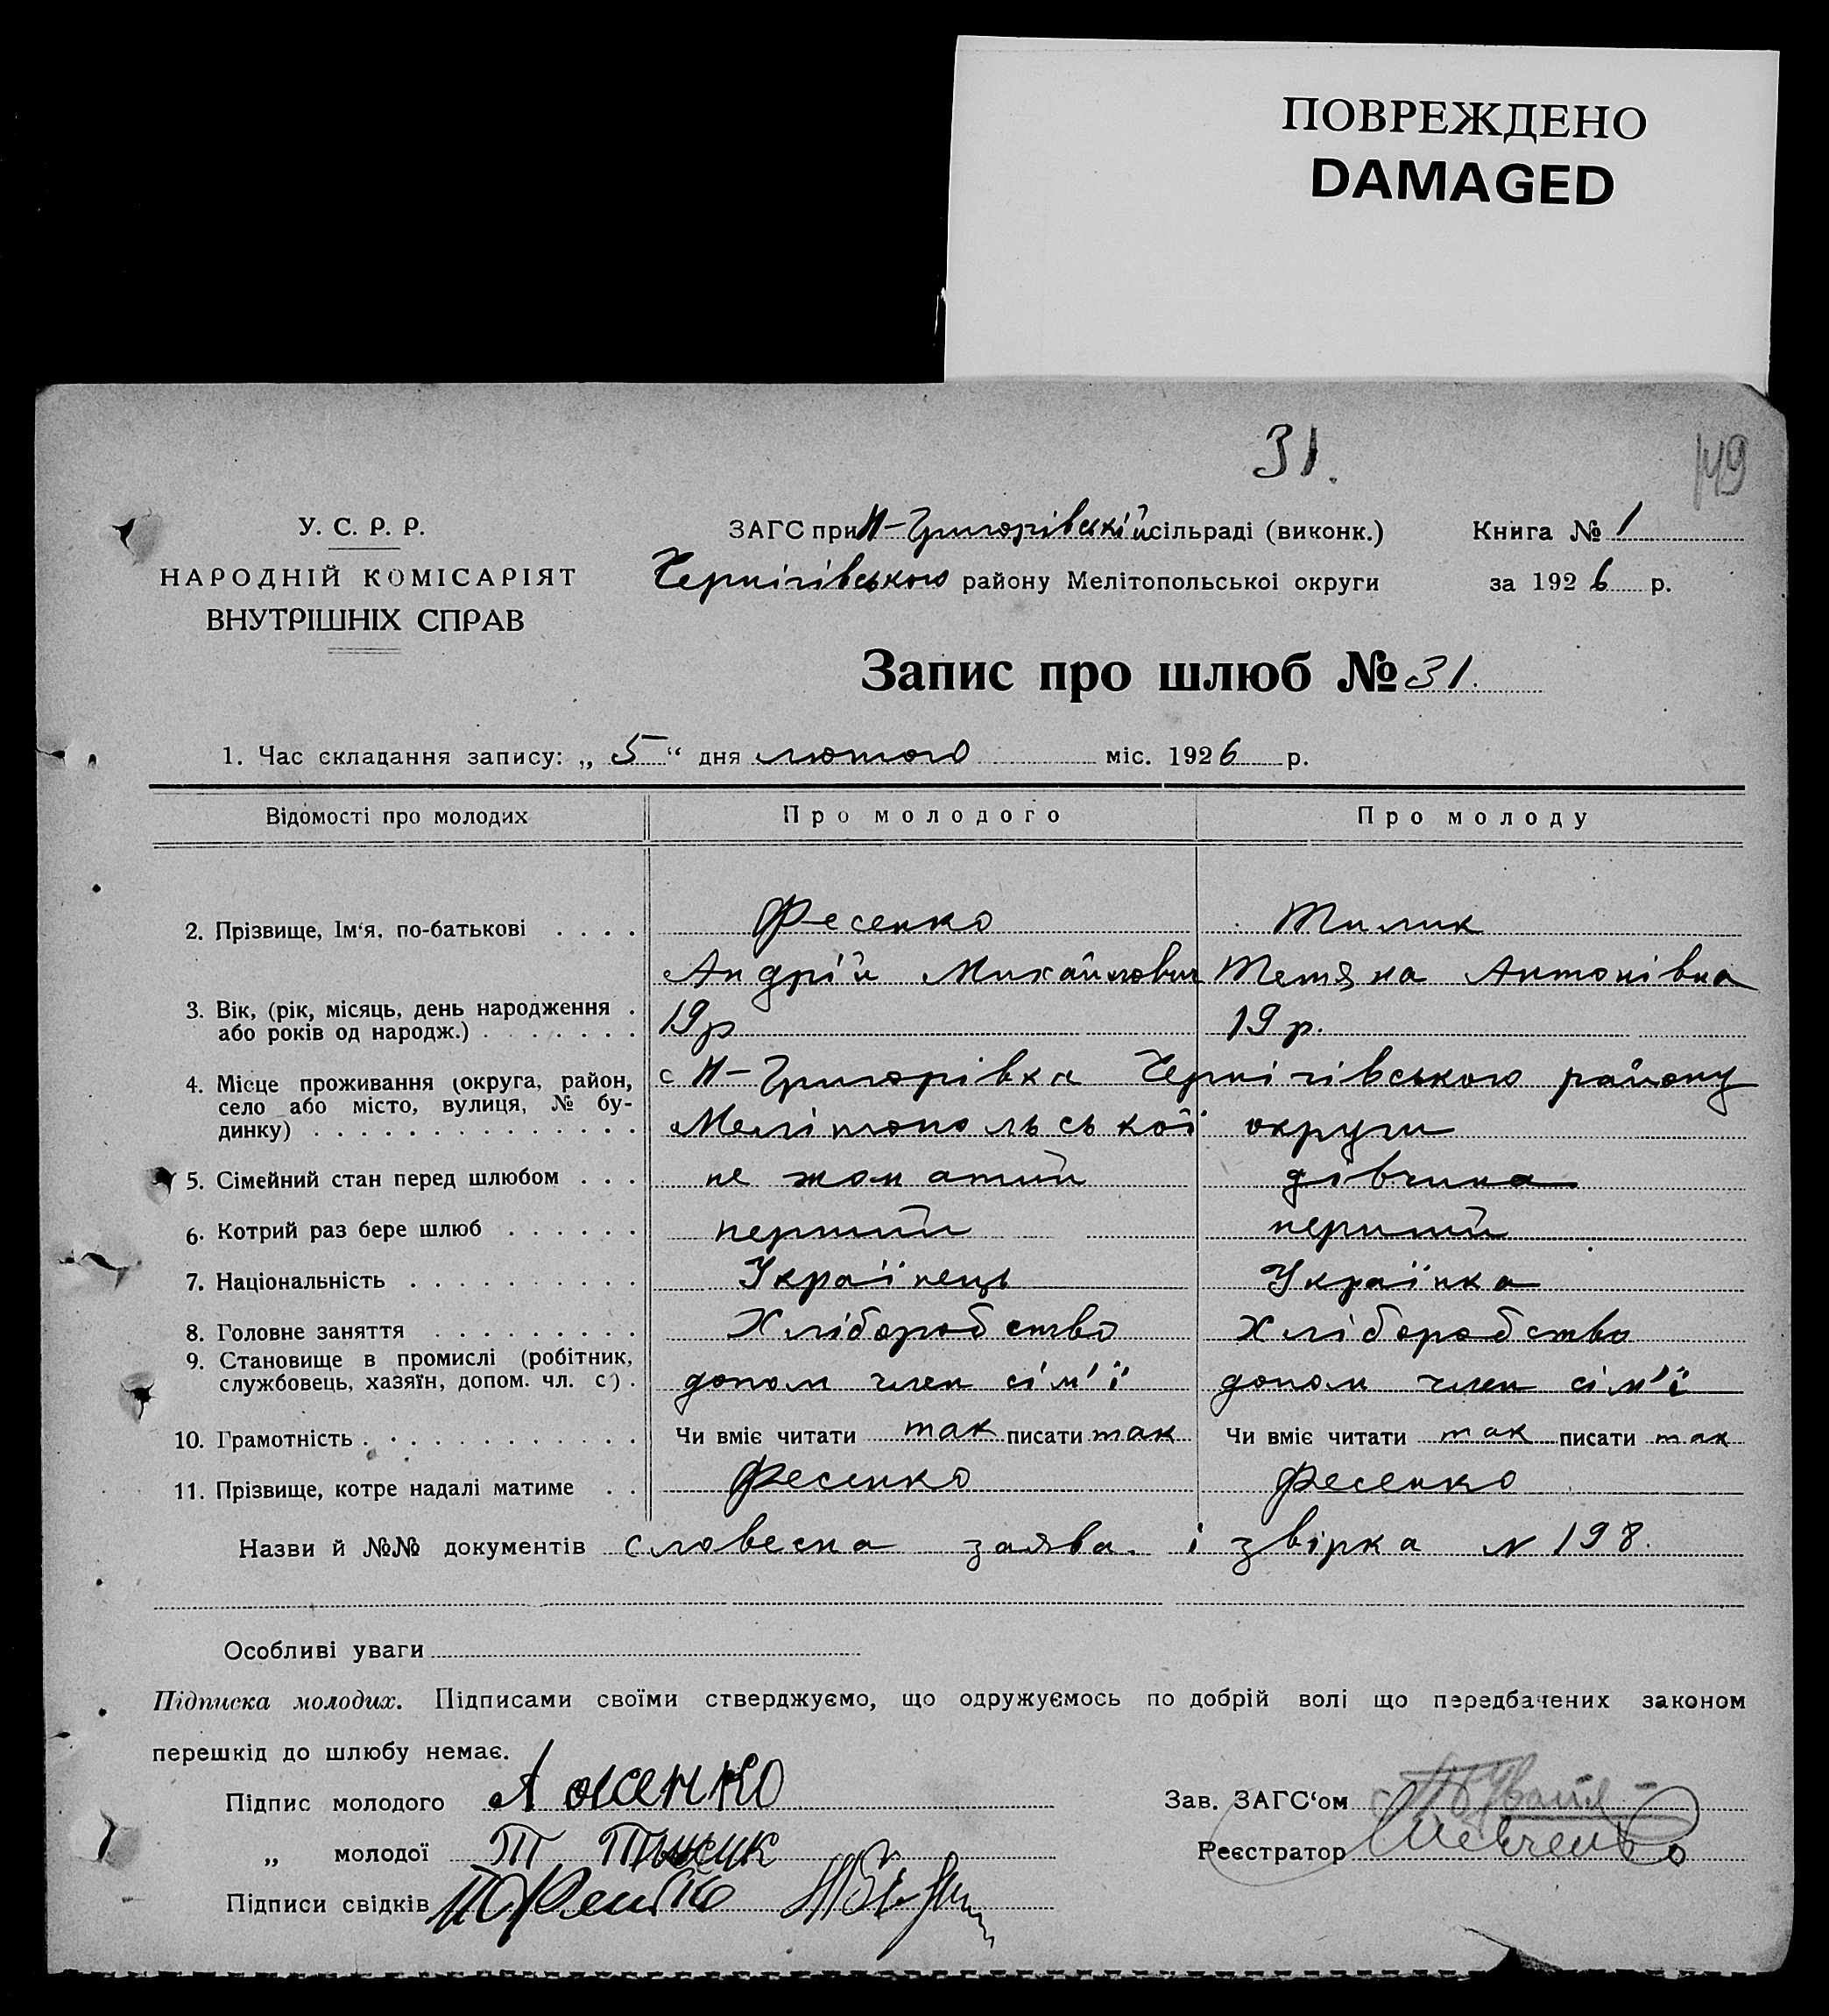 ПОВРЕЖДЕНО
DAMAGED
31.
149
У. С. Р. Р.
НАРОДНІЙ КОМІСАРІЯТ
ВНУТРІШНІХ СПРАВ
ЗАГС при Н-Григорівській сільраді (виконк.)
Чернігівського району Мелітопольської округи
Книга № 1
за 1926 р.
Запис про шлюб № 31.
1. Час складання запису: „ 5 “ дня лютого міс. 1926 р.
Відомості про молодих Про молодого Про молоду
2. Прізвище, Ім‘я, по-батькові . . . . Фесенко Тилик
Андрій Михайлович Тетяна Антонівна
3. Вік, (рік, місяць, день народження .
або років од народж.) . . . . . . . 19 р 19 р.
4. Місце проживання (округа, район, с Н-Григорівка Чернігівського району
село або місто, вулиця, № бу-
динку) . . . . . . . . . . . . . . Мелітопольської округи
5. Сімейний стан перед шлюбом . . . не жонатий дівчина
6. Котрий раз бере шлюб . . . . . . перший перший
7. Національність . . . . . . . . . . Українець Українка
8. Головне заняття . . . . . . . . . Хліборобство Хліборобство
9. Становище в промислі (робітник,
службовець, хазяїн, допом. чл. с) . допом член сім'ї допом член сім'ї
10. Грамотність . . . . . . . . . . . . Чи вміє читати так писати так Чи вміє читати так писати так
11. Прізвище, котре надалі матиме . . Фесенко Фесенко
Назви й №№ документів словесна заява. і звірка N 198.
Особливі уваги
Підписка молодих. Підписами своїми стверджуємо, що одружуємось по добрій волі що передбачених законом
перешкід до шлюбу немає.
Підпис молодого А
„ молодої Т
Підписи свідків
Зав. ЗАГС‘ом
Реєстратор Шевченко